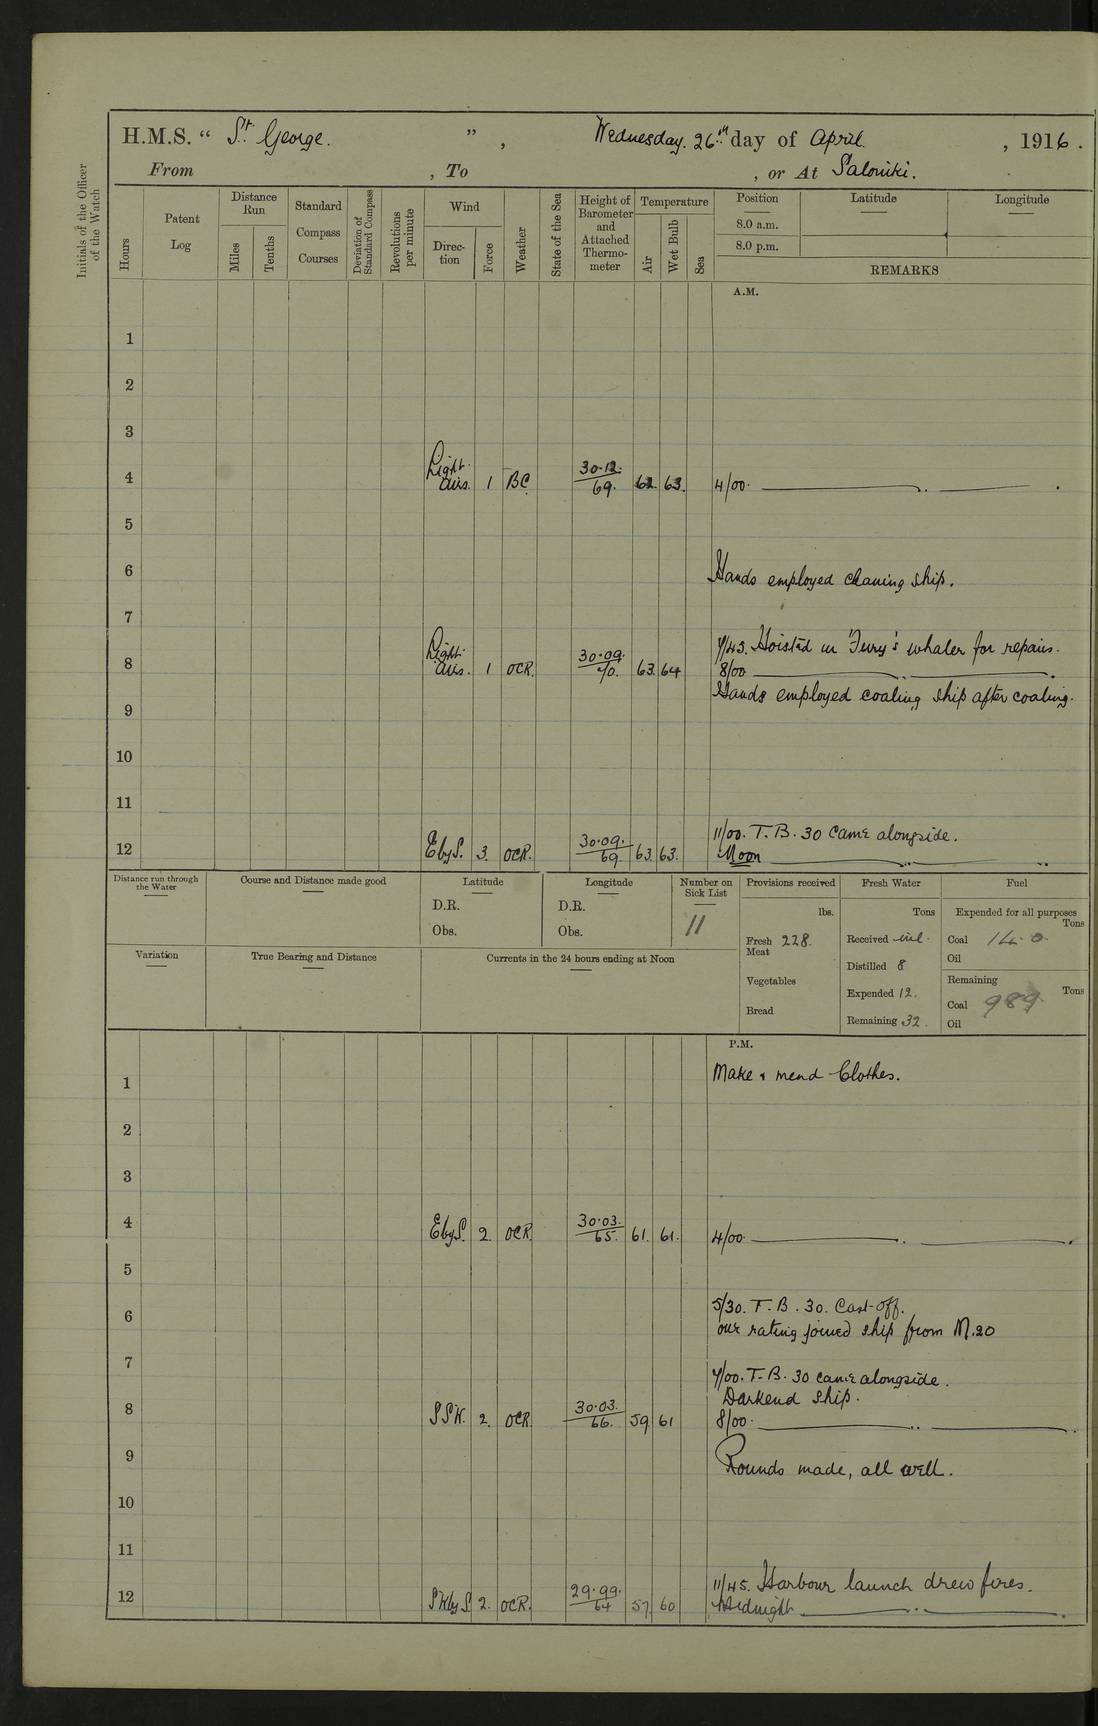 H.M.S. “ St. George. ” , Wednesday. 26th day of April. , 1916.
From , To , or At Saloniki.
Initials of the Officer of the Watch
Hours
Patent Log
Distance Run
Miles
Tenths
Standard Compass Courses
Deviation of Standard Compass
Revolutions per minute
Wind
Direction
Force
Weather
State of the Sea
Height of Barometer and Attached Thermometer
Temperature
Air
Wet Bulb
Sea
Position
8.0 a.m.
8.0 p.m.
Latitude
Longitude
REMARKS
A.M.
1
2
3
4 Light airs. 1 BC. 30.12. 69. 62. 63. 4/00.
5
6 Hands employed cleaning ship.
7
7/45. Hoisted in "Fury's whaler for repairs.
8 Light airs. 1 OCR. 30.09. 70. 63. 64 8/00
Hands employed coaling ship after coaling.
9
10
11
11/00. T.B. 30 came alongside.
12 E by S. 3. OCR. 30.09. 69. 63. 63. Noon
Distance run through the Water
Course and Distance made good
Latitude
D.R.
Obs.
Longitude
D.R.
Obs.
Number on Sick List
11
Provisions received
lbs.
Fresh Meat 228.
Vegetables
Bread
Fresh Water
Tons
Received nil.
Distilled 8
Expended 12.
Remaining 32.
Fuel
Expended for all purposes
Tons
Coal 14.0
Oil
Remaining
Tons
Coal 989
Oil
Variation
True Bearing and Distance
Currents in the 24 hours ending at Noon
P.M.
1 Make & mend Clothes.
2
3
4 E by S. 2. OCR. 30.03. 65. 61. 61. 4/00.
5
5/30. T.B. 30. Cast-off.
6 one rating joined ship from M.20
7
7/00. T.B. 30 came alongside.
Darkend ship.
8 SSW. 2. OCR. 30.03. 66. 59. 61 8/00.
9 Rounds made, all well.
10
11
11/45. Harbour launch drew fires.
12 SW by S. 2. OCR. 29.99. 64 57. 60 Midnight